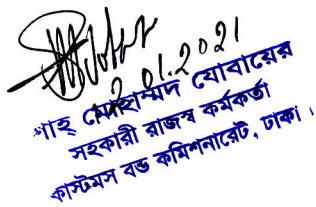 02.01.2021
শাহ্ মোহাম্মদ যোবায়ের
সহকারী রাজস্ব কর্মকর্তা
কাস্টমস বন্ড কমিশনারেট, ঢাকা।